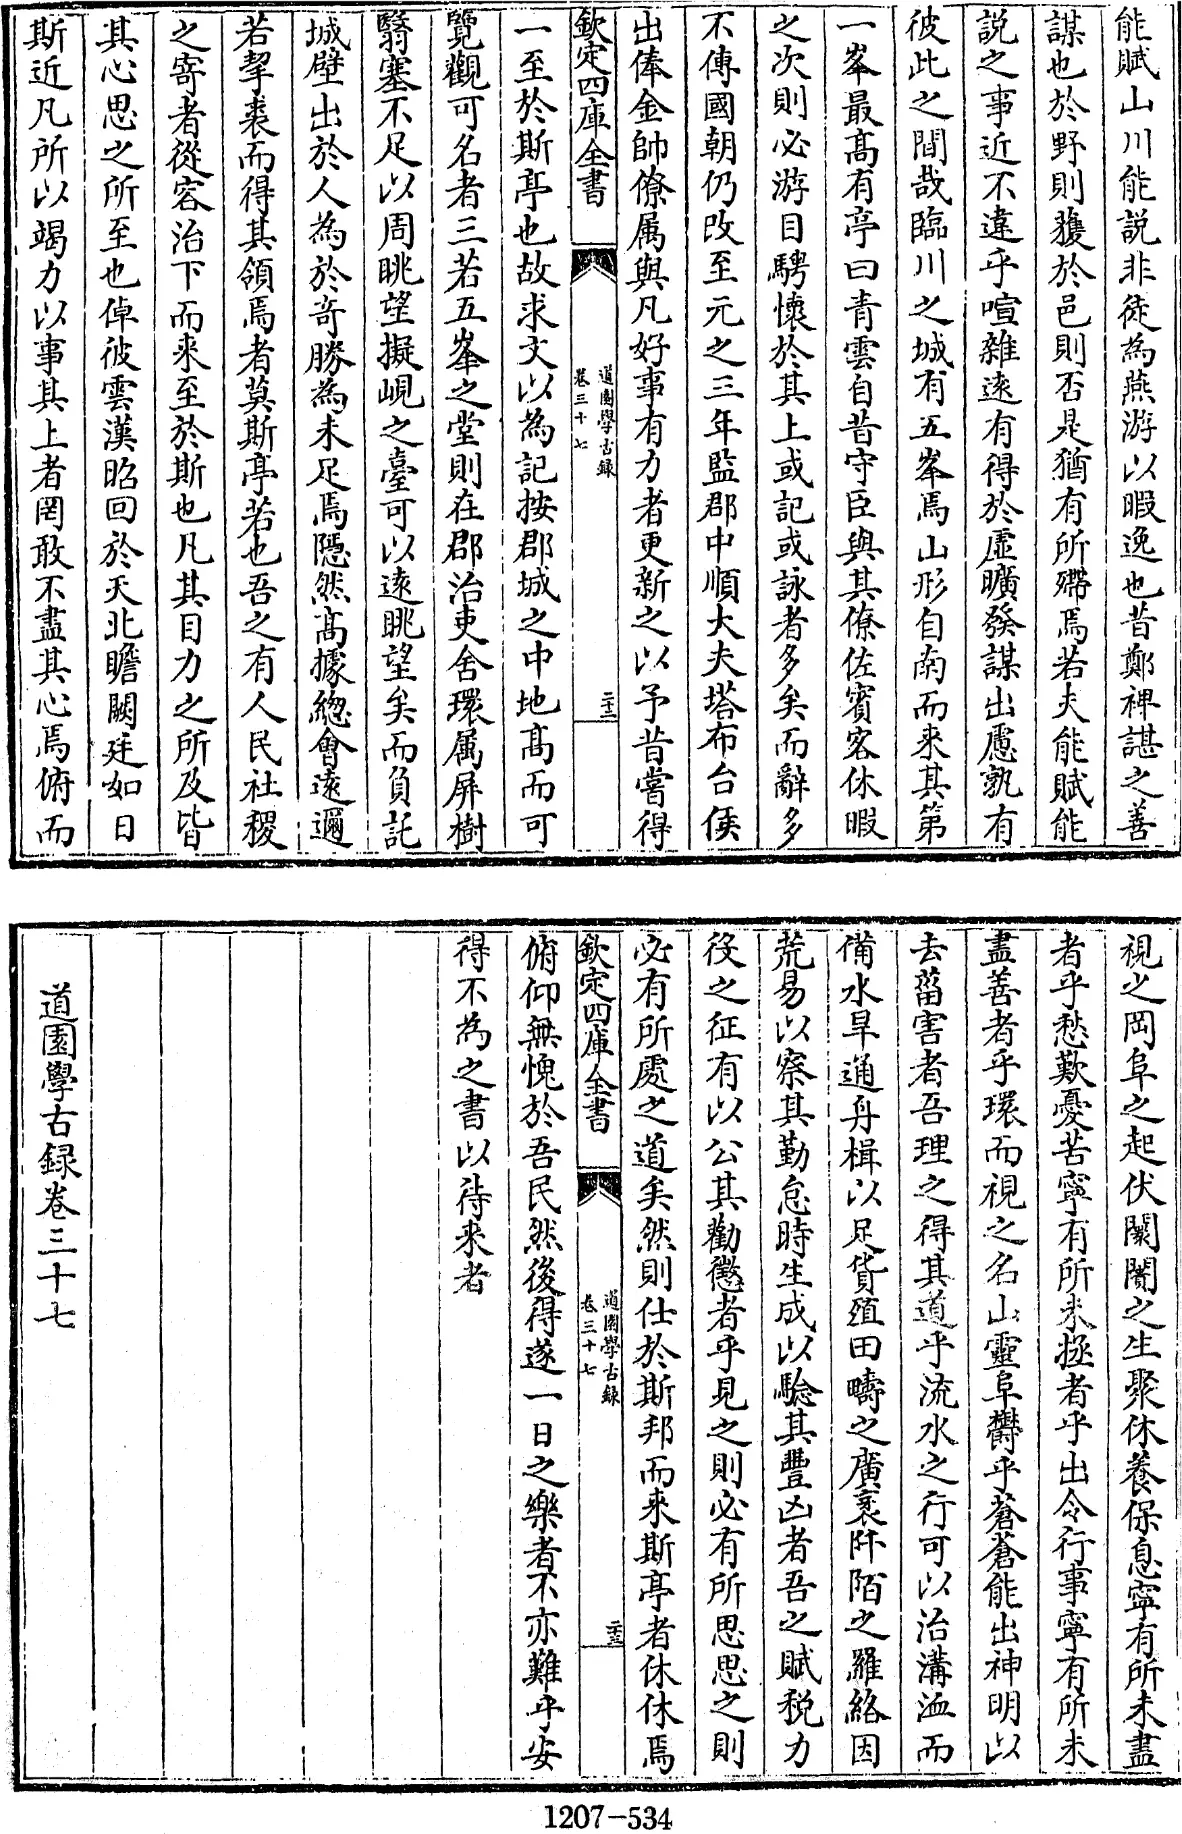 能賦山川能説非徒為燕游以暇逸也昔鄭裨諶之善
謀也於野則獲於邑則否是猶有所殢焉若夫能賦能
説之事近不違乎喧雜遠有得於虛曠發謀出慮孰有
彼此之間哉臨川之城有五峯焉山形自南而来其第
一峯最髙有亭曰青雲自昔守臣與其僚佐賓客休暇
之次則必游目騁懷於其上或記或詠者多矣而辭多
不傳國朝仍改至元之三年監郡中順大夫塔布台侯
出俸金帥僚属與凡好事有力者更新之以予昔嘗得
欽定四庫全書
道園學古録
卷三十七
二十二
一至於斯亭也故求文以為記按郡城之中地髙而可
覽觀可名者三若五峯之堂則在郡治吏舍環属屏樹
翳塞不足以周眺望擬峴之臺可以遠眺望矣而負託
城壁出於人為於奇勝為未足焉隱然髙據總會遠邇
若挈裘而得其領焉者莫斯亭若也吾之有人民社稷
之寄者從容治下而来至於斯也凡其目力之所及皆
其心思之所至也倬彼雲漢昭回於天北瞻闕廷如日
斯近凡所以竭力以事其上者罔敢不盡其心焉俯而
視之岡阜之起伏闤闠之生聚休養保息寧有所未盡
者乎愁歎憂苦寧有所未拯者乎出令行事寧有所未
盡善者乎環而視之名山靈阜鬱乎蒼蒼能出神明以
去菑害者吾理之得其道乎流水之行可以治溝洫而
備水旱通舟楫以足貨殖田疇之廣袤阡陌之羅絡因
荒易以察其勤怠時生成以驗其豐凶者吾之賦税力
役之征有以公其勸懲者乎見之則必有所思思之則
必有所處之道矣然則仕於斯邦而来斯亭者休休焉
欽定四庫全書
道園學古録
卷三十七
二十三
俯仰無愧於吾民然後得遂一日之樂者不亦難乎安
得不為之書以待来者
道園學古録卷三十七
1207-534